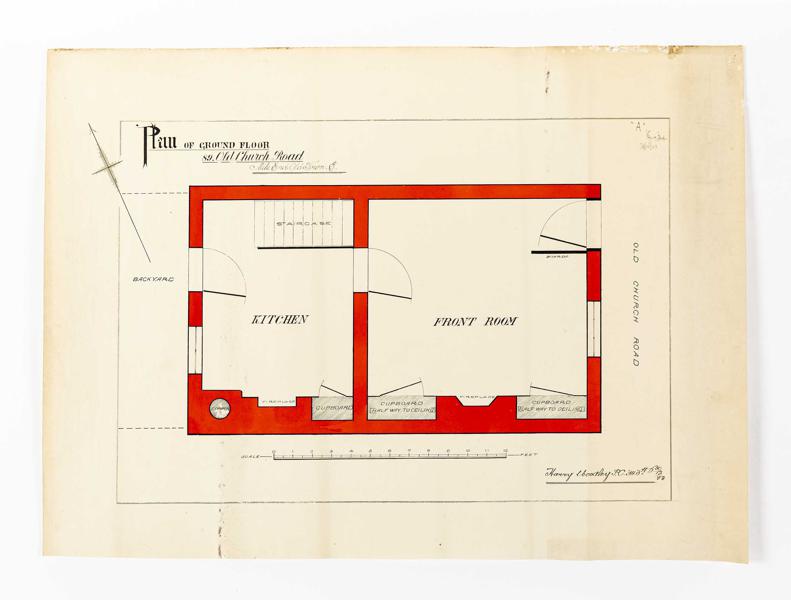 Plan OF GROUND FLOOR
89, Old Church Road
Mile End Old Town. E.
"A"
STAIRCASE
BACKYARD
KITCHEN
FRONT ROOM
SCREEN
OLD CHURCH ROAD
COPPER
FIREPLACE
CUPBOARD
CUPBOARD
HALF WAY TO CEILING
FIREPLACE
CUPBOARD
HALF WAY TO CEILING
SCALE
0 1 2 3 4 5 6 7 8 9 10 11 12
FEET
Harry Woodley P.C.